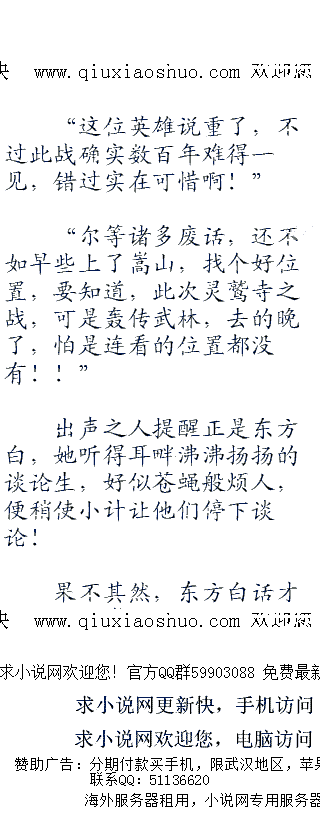 快 www.qiuxiaoshuo.com 欢迎您
“这位英雄说重了，不
过此战确实数百年难得一
见，错过实在可惜啊！”
“尔等诸多废话，还不
如早些上了嵩山，找个好位
置，要知道，此次灵鹫寺之
战，可是轰传武林，去的晚
了，怕是连看的位置都没
有！！”
出声之人提醒正是东方
白，她听得耳畔沸沸扬扬的
谈论生，好似苍蝇般烦人，
便稍使小计让他们停下谈
论！
果不其然，东方白话才
快 www.qiuxiaoshuo.com 欢迎您
求小说网欢迎您！官方QQ群59903088 免费最新
求小说网更新快，手机访问
求小说网欢迎您，电脑访问
赞助广告：分期付款买手机，限武汉地区，苹果
联系QQ：51136620
海外服务器租用，小说网专用服务器